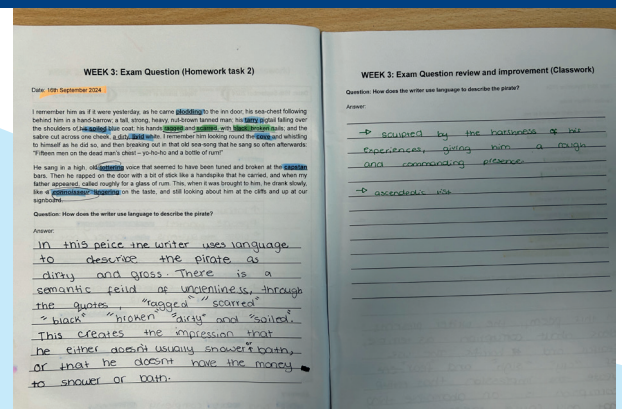 WEEK 3: Exam Question (Homework task 2)
Date: 16th September 2024
I remember him as if it were yesterday, as he came plodding to the inn door, his sea-chest following
behind him in a hand-barrow; a tall, strong, heavy, nut-brown tanned man; his tarry pigtail falling over
the shoulders of his soiled blue coat; his hands ragged and scarred, with black, broken nails; and the
sabre cut across one cheek, a dirty, livid white. I remember him looking round the cove and whistling
to himself as he did so, and then breaking out in that old sea-song that he sang so often afterwards:
"Fifteen men on the dead man's chest – yo-ho-ho and a bottle of rum!"
He sang in a high, old tottering voice that seemed to have been tuned and broken at the capstan
bars. Then he rapped on the door with a bit of stick like a handspike that he carried, and when my
father appeared, called roughly for a glass of rum. This, when it was brought to him, he drank slowly,
like a connoisseur, lingering on the taste, and still looking about him at the cliffs and up at our
signboard.
Question: How does the writer use language to describe the pirate?
Answer:
In this peice the writer uses language
to describe the pirate as
dirty and gross. There is a
semantic feild of uncleniness, through
the quotes, "ragged" "scarred"
"black" "broken" "dirty" and "soiled".
This creates the impression that
he either doesn't usually shower or bath,
or that he doesnt have the money
to shower or bath.
WEEK 3: Exam Question review and improvement (Classwork)
Question: How does the writer use language to describe the pirate?
Answer:
→ sculpted by the harshness of his
experiences, giving him a rough
and commanding presence.